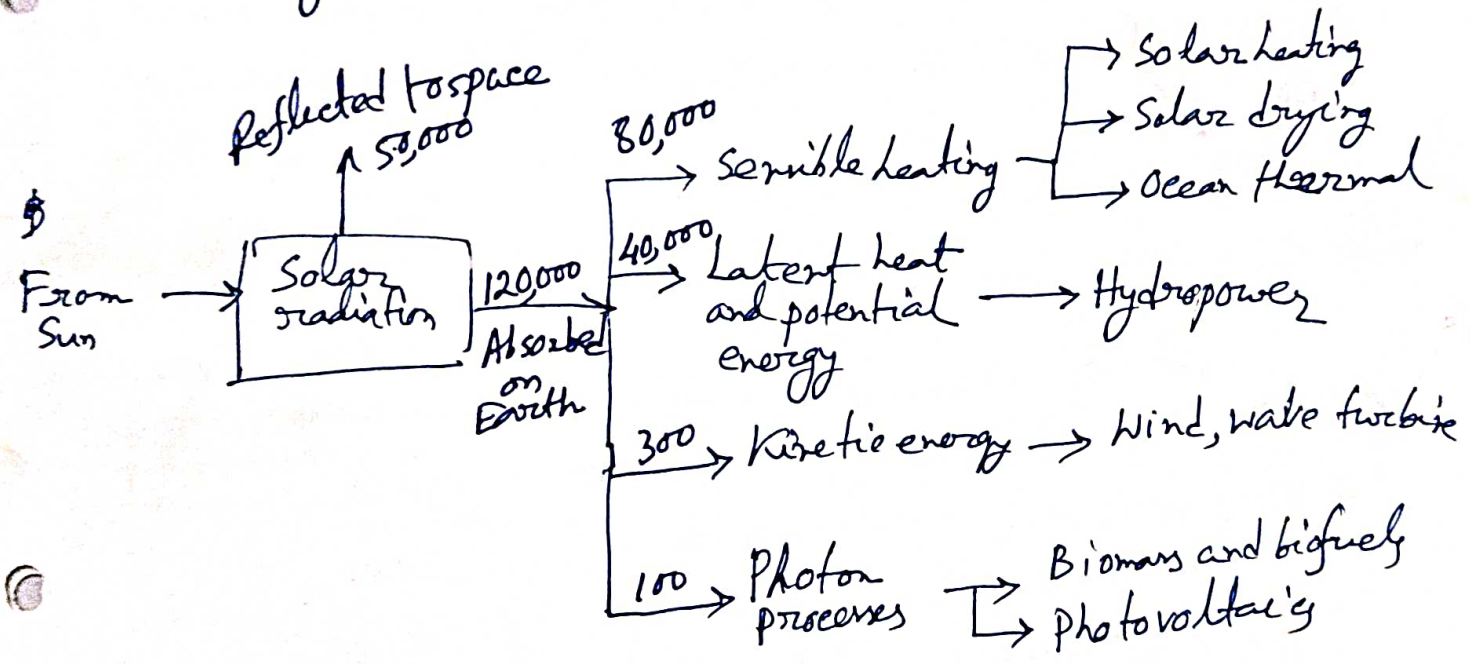 Reflected to space
50,000
From
Sun
Solar
radiation
120,000
Absorbed
on
Earth
80,000
Sensible heating
Solar heating
Solar drying
Ocean thermal
40,000
Latent heat
and potential
energy
Hydropower
300
Kinetic energy
Wind, wave turbine
100
Photon
processes
Biomass and biofuels
Photovoltaics